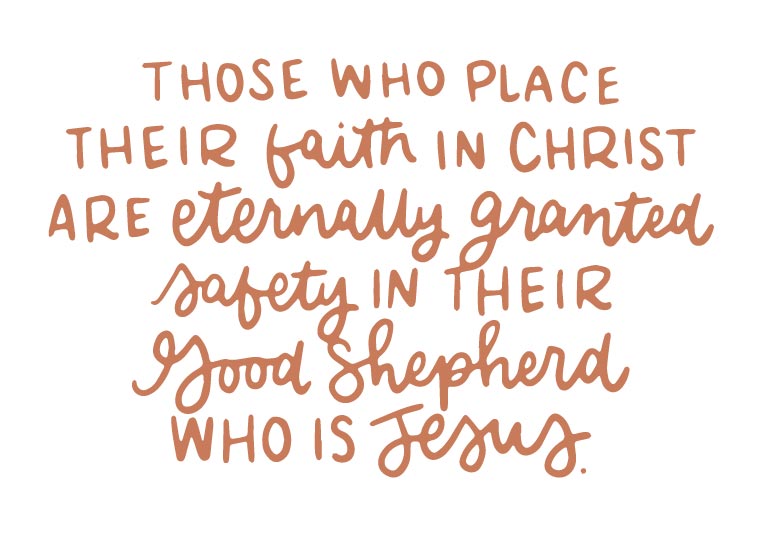 THOSE WHO PLACE
THEIR faith IN CHRIST
ARE eternally granted
safety IN THEIR
Good Shepherd
WHO IS Jesus.